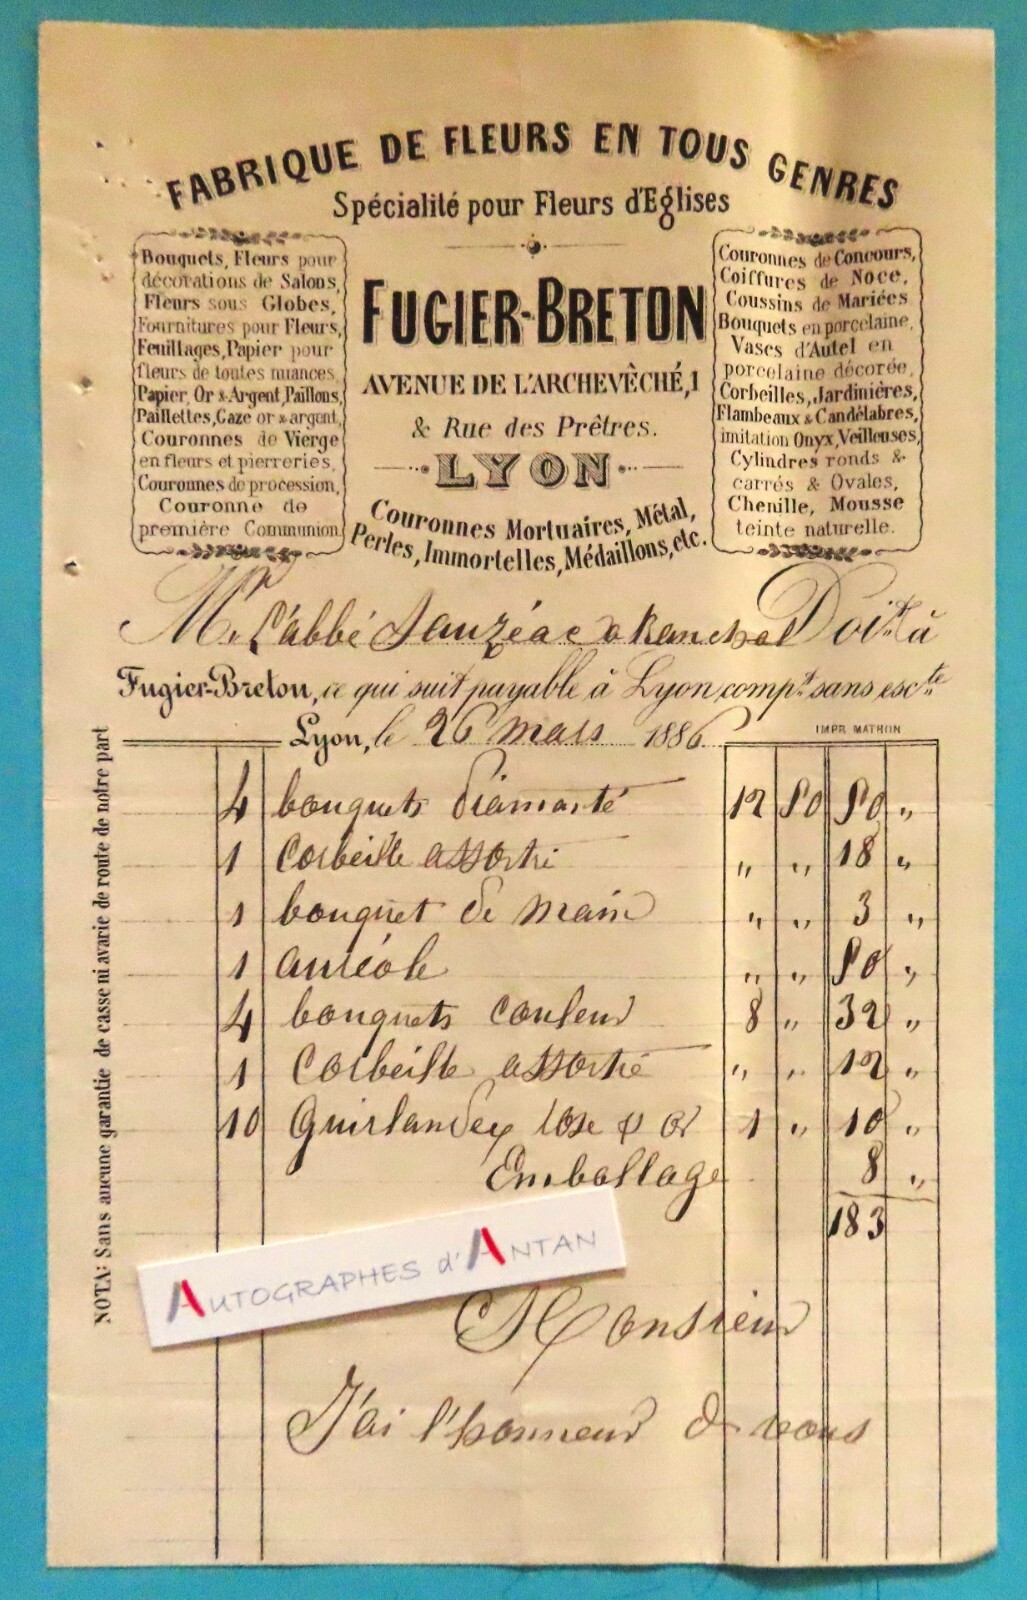 FABRIQUE DE FLEURS EN TOUS GENRES
Spécialité pour Fleurs d'Eglises
Bouquets, Fleurs pour
décorations de Salons,
Fleurs sous Globes,
Fournitures pour Fleurs,
Feuillages, Papier pour
fleurs de toutes nuances,
Papier, Or & Argent, Paillons,
Paillettes, Gaze or & argent,
Couronnes de Vierge
en fleurs et pierreries,
Couronnes de procession,
Couronne de
première Communion
FUGIER-BRETON
AVENUE DE L'ARCHEVÊCHÉ, 1
& Rue des Prêtres.
LYON
Couronnes Mortuaires, Métal,
Perles, Immortelles, Médaillons, etc.
Couronnes de Concours,
Coiffures de Noce,
Coussins de Mariées
Bouquets en porcelaine,
Vases d'Autel en
porcelaine décorée,
Corbeilles, Jardinières,
Flambeaux & Candélabres,
imitation Onyx, Veilleuses,
Cylindres ronds &
carrés & Ovales,
Chenille, Mousse
teinte naturelle.
Mr. l'abbé Sauzéac à Ranchal Doit à
Fugier-Breton, ce qui suit payable à Lyon compt. sans escte
Lyon, le 26 mars 1886
IMPR. MATHON
NOTA: Sans aucune garantie de casse ni avarie de route de notre part
4 bouquets diamanté 12 50 50 "
1 Corbeille assorti " " 18 "
1 bouquet de main " " 3 "
1 auréole " " 50 "
4 bouquets couleur 8 " 32 "
1 Corbeille assortie " " 12 "
10 Guirlandes rose & or 1 " 10 "
Emballage 8 "
183
AUTOGRAPHES d'ANTAN
Monsieur
J'ai l'honneur de vous